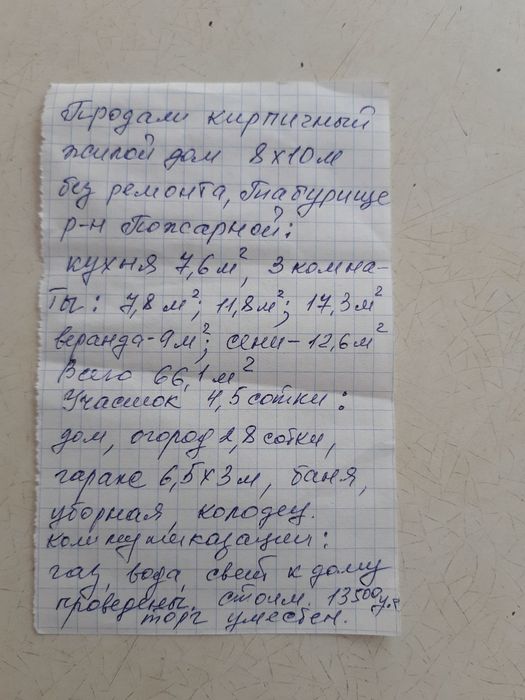 Продали кирпичный
жилой дом 8х10м
без ремонта, Гиабурище
р-н Пожарной:
кухня 7,6м², 3 комна-
ты: 7,8м²; 11,8м²; 17,3м²
веранда-9м²; сени-12,6м²
Всего 66,1м²
Участок 4,5сотки:
дом, огород 2,8сотки,
гараж 6,5х3м, баня,
уборная, колодец.
коммуникации:
газ, вода, свет к дому
проведены. стоим. 13500у.е
торг уместен.